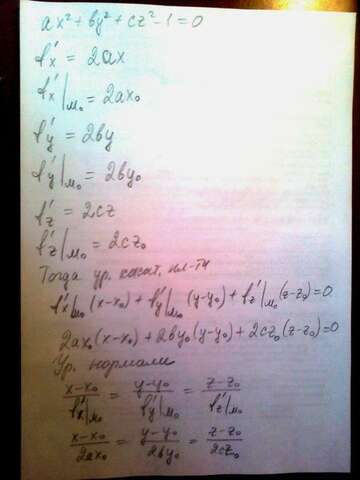 ax² + by² + cz² - 1 = 0
f'x = 2ax
f'x|M₀ = 2ax₀
f'y = 2by
f'y|M₀ = 2by₀
f'z = 2cz
f'z|M₀ = 2cz₀
Тогда ур. касат. пл-ти
f'x|M₀ (x-x₀) + f'y|M₀ (y-y₀) + f'z|M₀ (z-z₀) = 0
2ax₀(x-x₀) + 2by₀(y-y₀) + 2cz₀(z-z₀) = 0
Ур. нормали
(x-x₀)/(f'x|M₀) = (y-y₀)/(f'y|M₀) = (z-z₀)/(f'z|M₀)
(x-x₀)/(2ax₀) = (y-y₀)/(2by₀) = (z-z₀)/(2cz₀)